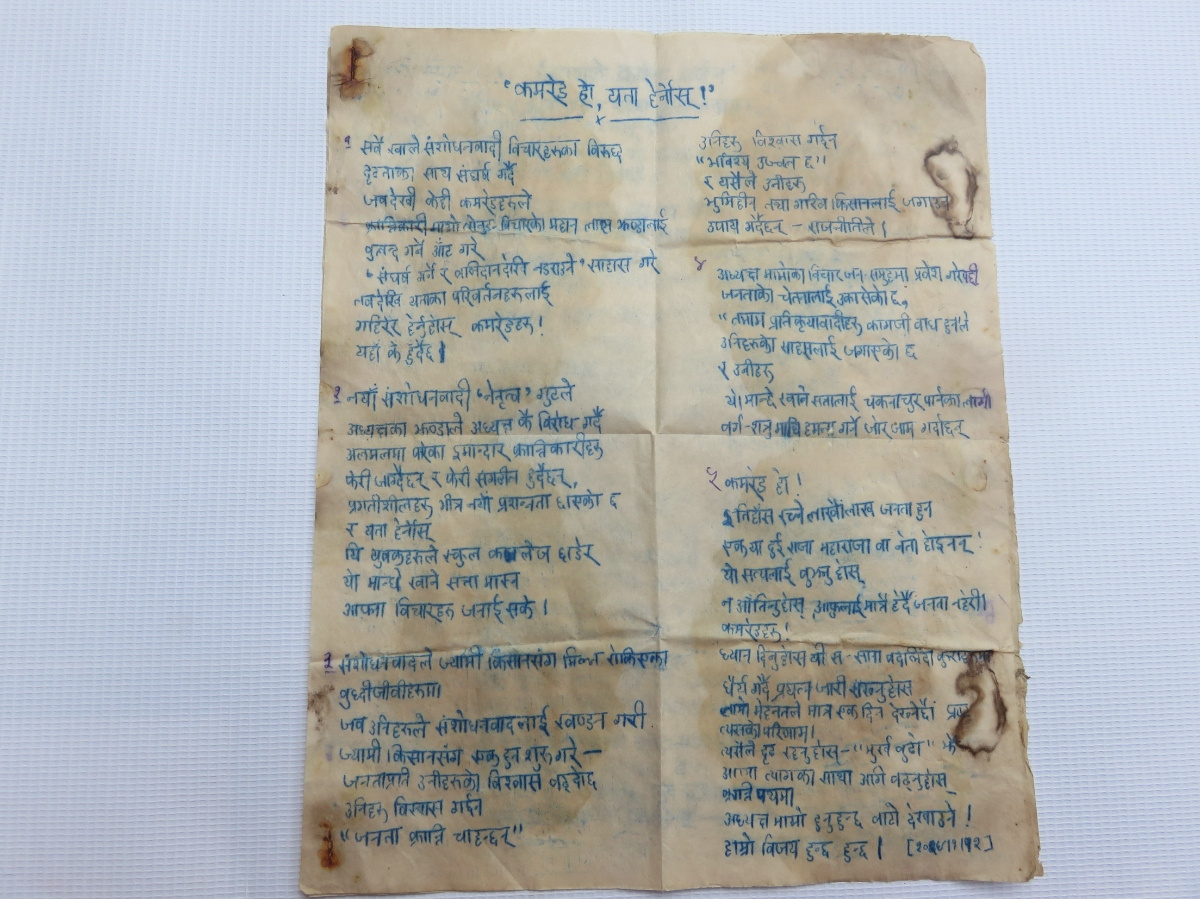 "कमरेड हो, यता हेर्नोस्!"
१ सवै खाले संशोधनवादी विचारहरुका विरुद्ध
दृढताका साथ संघर्ष गर्दै
जवदेखी केही कमरेडहरुले
क्रान्तिकारी माओ विचारको महान लाल झण्डालाई
वुलन्द गर्ने आँट गरे
"संघर्ष गर्ने र वलिदानदेखि नडराउने" साहास गरे
तवदेखि यताका परिवर्तनहरुलाई
गहिरेर हेर्नुहोस् कमरेडहरु!
यहाँ के हुँदैछ।
२ नयाँ संशोधनवादी "नेतृत्व" गुटले
अध्यक्षका झण्डाले अध्यक्ष कै विरोध गर्दै
अलमलमा परेका इमान्दार क्रान्तिकारीहरु
फेरी जाग्दैछन् र फेरी संगठीत हुदैछन्,
प्रगतीशीलहरु भीत्र नयाँ प्रशन्नता छाएको छ
र यता हेर्नोस्
यि युवकहरुले स्कुल कलेज छाडेर
यो मान्छे खाने सत्ता मास्न
आफ्ना विचारहरु जनाई सके।
३ संशोधनवादले ज्यामी किसानसंग मिल्न रोकिएका
वुध्दीजीवीहरुमा
जव उनिहरुले संशोधनवादलाई खण्डन गरी
ज्यामी किसानसंग एक हुन शुरु गरे—
जनताप्रति उनीहरुको विश्वास वढ्दोछ
उनिहरु विस्वास गर्छन
"जनता क्रान्ति चाहन्छन्"
उनिहरु विश्वास गर्छन
"भविश्य उज्वल छ"
र यसैले उनीहरु
भुमिहीन तथा गरिव किसानलाई
उपाय गर्दैछन् – राजनीतीले।
४ अध्यक्ष माओका विचार जन-समुद्रमा प्रवेश गरेपछी
जनताको चेतनालाई उकासेको छ,
"तमाम प्रतिकृयावादीहरु कागजी वाघ हुन"ले
उनिहरुको साहसलाई जगाएको छ
र उनीहरु
यो मान्छे खाने सत्तालाई चकनाचुर पार्नका लागी
वर्ग-शत्रु माथि हमला गर्ने जोरजाम गर्दाछन्
५ कमरेड हो!
इतिहाँस रच्ने लाखौं लाख जनता हुन
एक या दुई राजा महाराजा वा नेता होइनन्!
यो सत्यलाई वुझ्नुहोस्
न आत्तिनुहोस् आफुलाई मात्रै हेर्दै जनता नहेरी।
कमरेडहरु!
ध्यान दिनुहोस यी स-साना वदलिँदा
धैर्य गर्दै प्रयत्न जारी राख्नुहोस
लामो मेहनतले मात्र एक दिन देख्नेछौं
त्यसको परिणाम।
त्यसैले दृढ रहनुहोस्–"मुर्ख वुढो" झैं
आत्म त्यागका साथ अगि वढ्नुहोस्
क्रान्ति पथमा
अध्यक्ष माओ हुनुहुन्छ वाटो देखाउने!
हाम्रो विजय हुन्छ हुन्छ।